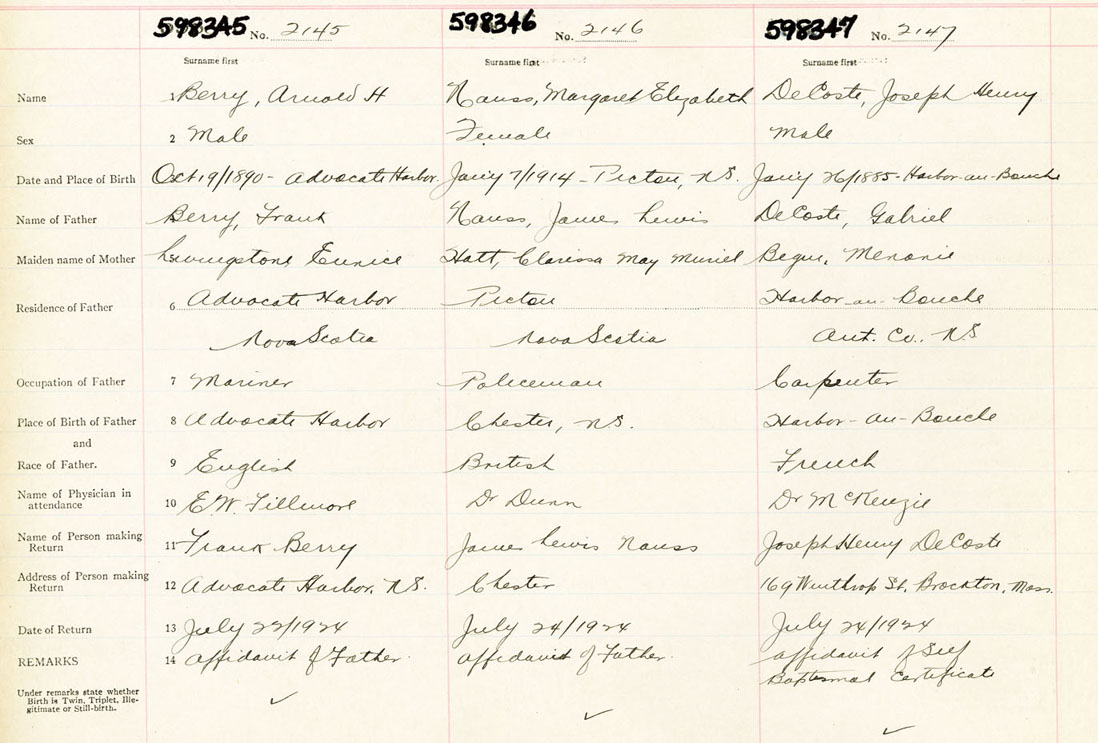 598345 No. 2145 598346 No. 2146 598347 No. 2147
Surname first Surname first Surname first
Name 1 Berry, Arnold H Nauss, Margaret Elizabeth DeCoste, Joseph Henry
Sex 2 Male Female Male
Date and Place of Birth Oct 19/1890 - Advocate Harbor. Jan'y 7/1914 - Pictou, N.S. Jan'y 26/1885 - Harbor-au-Bouche
Name of Father Berry, Frank Nauss, James Lewis DeCoste, Gabriel
Maiden name of Mother Livingstone, Eunice Hatt, Clarissa May Muriel Melanie
Residence of Father 6 Advocate Harbor Pictou Harbor-au-Bouche
Nova Scotia Nova Scotia Ant. Co., N.S
Occupation of Father 7 Mariner Policeman Carpenter
Place of Birth of Father 8 Advocate Harbor Chester, N.S. Harbor-au-Bouche
and
Race of Father. 9 English British French
Name of Physician in attendance 10 E.W. Fillmore Dr Dunn Dr McKenzie
Name of Person making Return 11 Frank Berry James Lewis Nauss Joseph Henry DeCoste
Address of Person making Return 12 Advocate Harbor, N.S. Chester 169 Winthrop St, Brockton, Mass.
Date of Return 13 July 22/1924 July 24/1924 July 24/1924
REMARKS 14 Affidavit of Father. Affidavit of Father. Affidavit of Self
Baptismal Certificate
Under remarks state whether
Birth is Twin, Triplet, Ille-
gitimate or Still-birth.